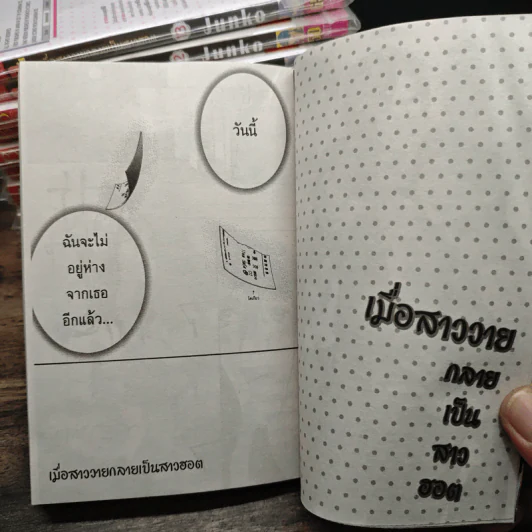 Junko
Junko
วันนี้
ฉันจะไม่
อยู่ห่าง
จากเธอ
อีกแล้ว...
เมื่อสาววายกลายเป็นสาวฮอต
เมื่อสาววาย
กลาย
เป็น
สาว
ฮอต